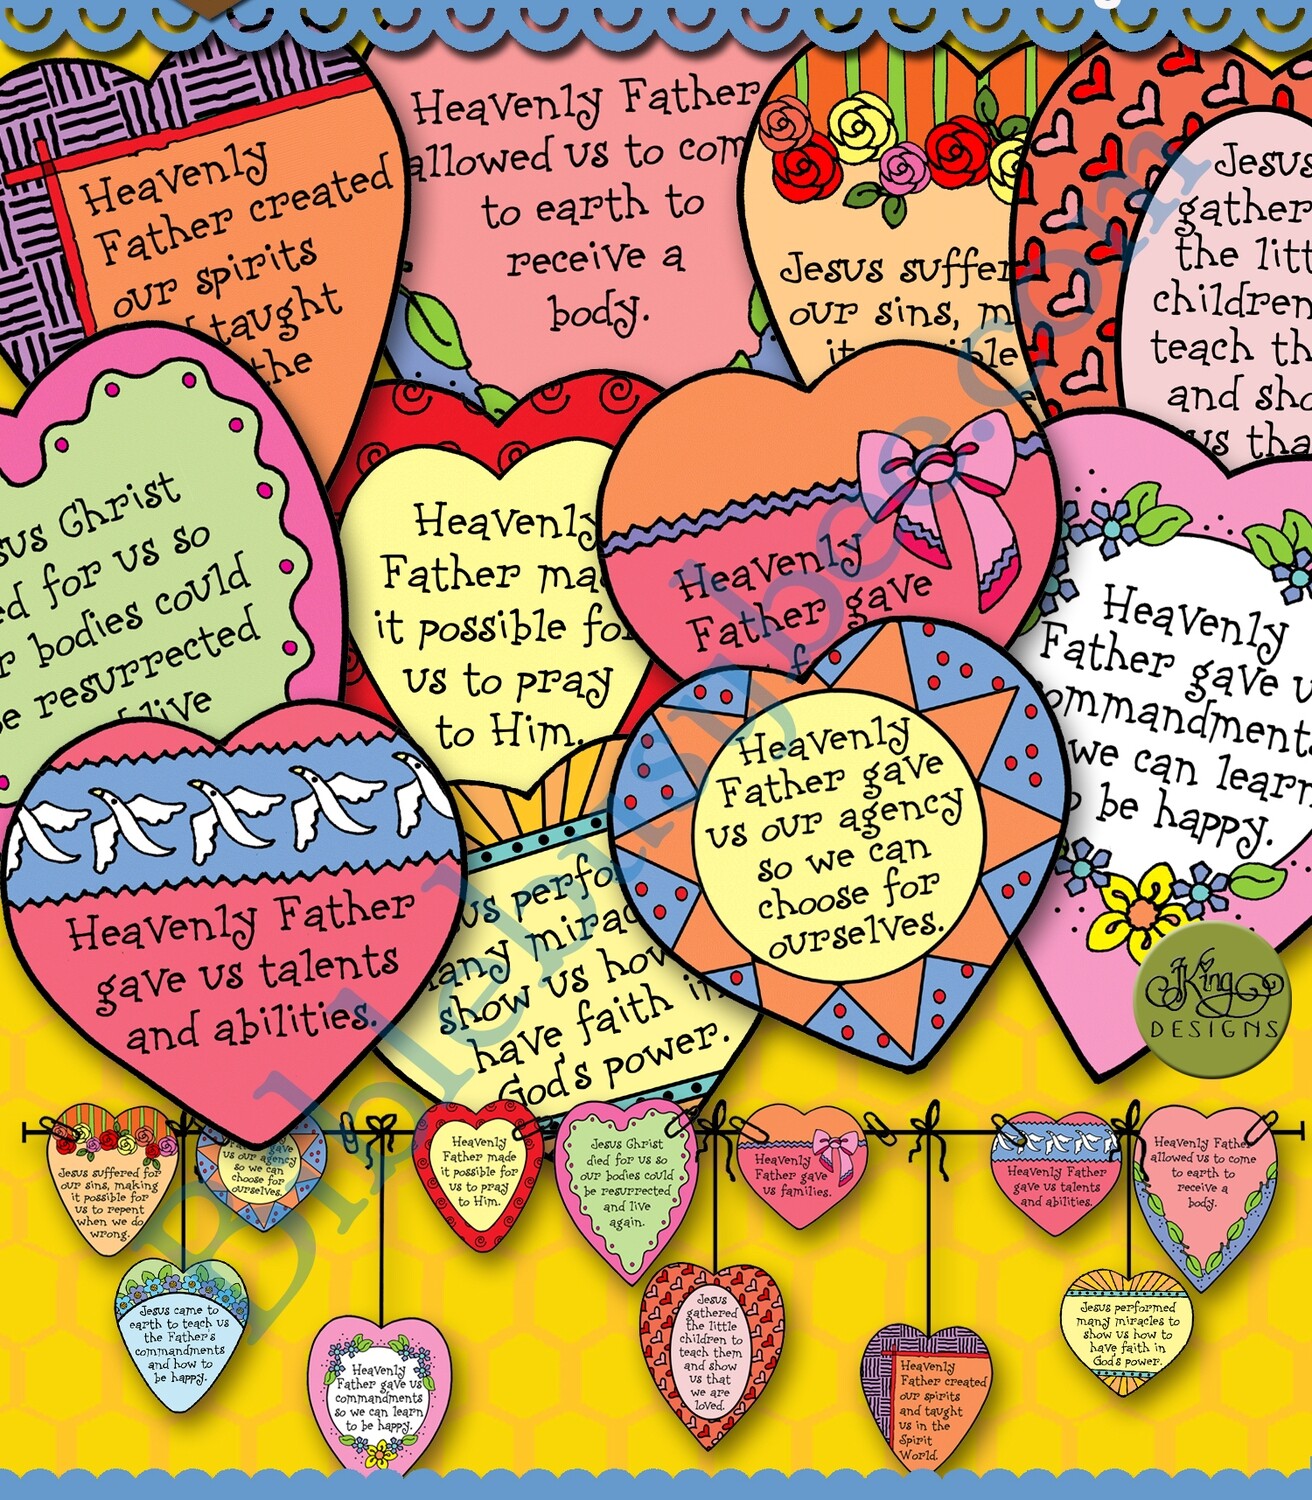 Heavenly
Father created
our spirits
taught
the
Heavenly Father
allowed us to com
to earth to
receive a
body.
Jesus suffer
our sins, m
Jesus
gather
the litt
children
teach th
and sho
us tha
sus Christ
ed for us so
r bodies could
e resurrected
live
Heavenly
Father ma
it possible for
us to pray
to Him.
Heavenly
Father gave
Heavenly
Father gave u
ommandments
we can learn
be happy.
Heavenly Father
gave us talents
and abilities.
us perfo
any mirac
show us how
have faith in
God's power.
Heavenly
Father gave
us our agency
so we can
choose for
ourselves.
JKing
DESIGNS
Biblebursybee.com
Jesus suffered for
our sins, making
it possible for
us to repent
when we do
wrong.
us our agency
so we can
choose for
ourselves.
Heavenly
Father made
it possible for
us to pray
to Him.
Jesus Christ
died for us so
our bodies could
be resurrected
and live
again.
Heavenly
Father gave
us families.
Heavenly Father
gave us talents
and abilities.
Heavenly Father
allowed us to come
to earth to
receive a
body.
Jesus came to
earth to teach us
the Father's
commandments
and how to
be happy.
Heavenly
Father gave us
commandments
so we can learn
to be happy.
Jesus
gathered
the little
children to
teach them
and show
us that
we are
loved.
Heavenly
Father created
our spirits
and taught
us in the
Spirit
World.
Jesus performed
many miracles to
show us how to
have faith in
God's power.